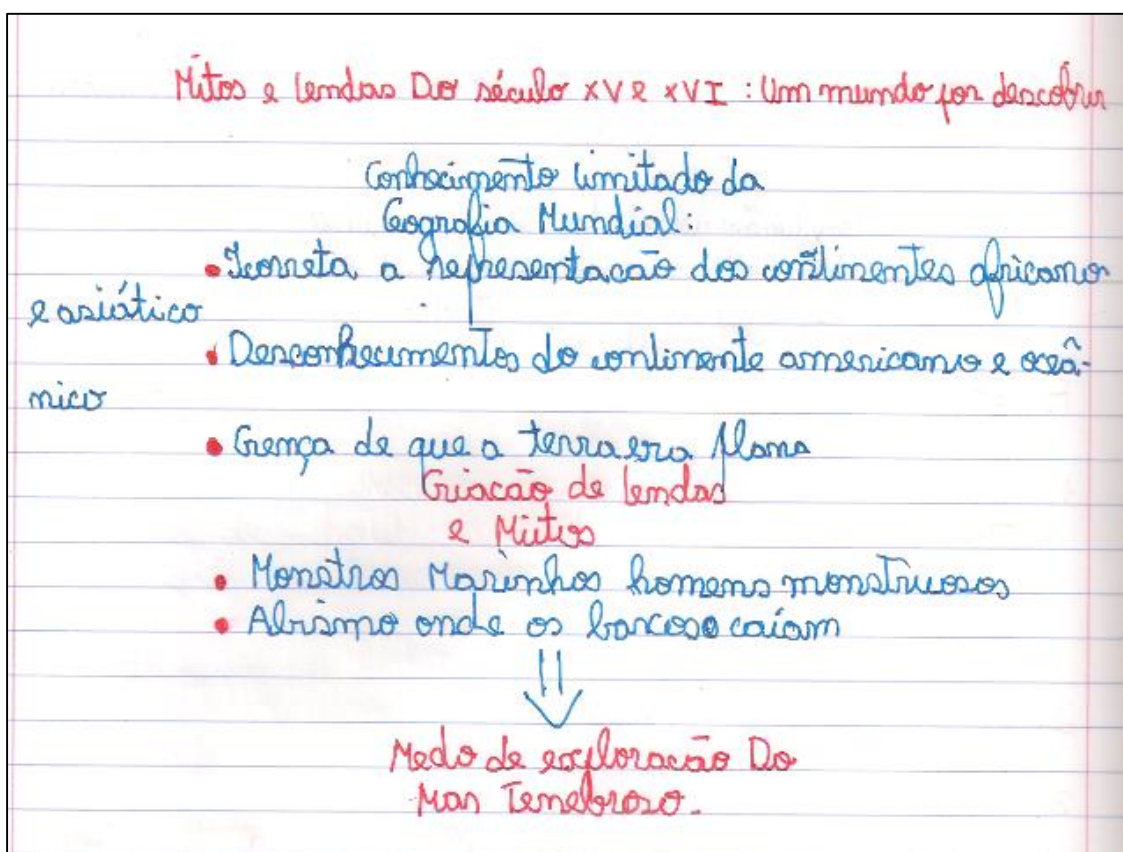 Mitos e lendas Do século XV e XVI : Um mundo por descobrir
Conhecimento limitado da
Geografia Mundial:
• Icorreta a representacão dos continentes africano
e asiático
• Desconhecimentos do continente americano e oceâ-
nico
• Crença de que a terra era plana
Criacão de lendas
e Mitos
• Monstros Marinhos homens monstruosos
• Abismo onde os barcos caíam
Medo de exploracão Do
Mar Tenebroso.